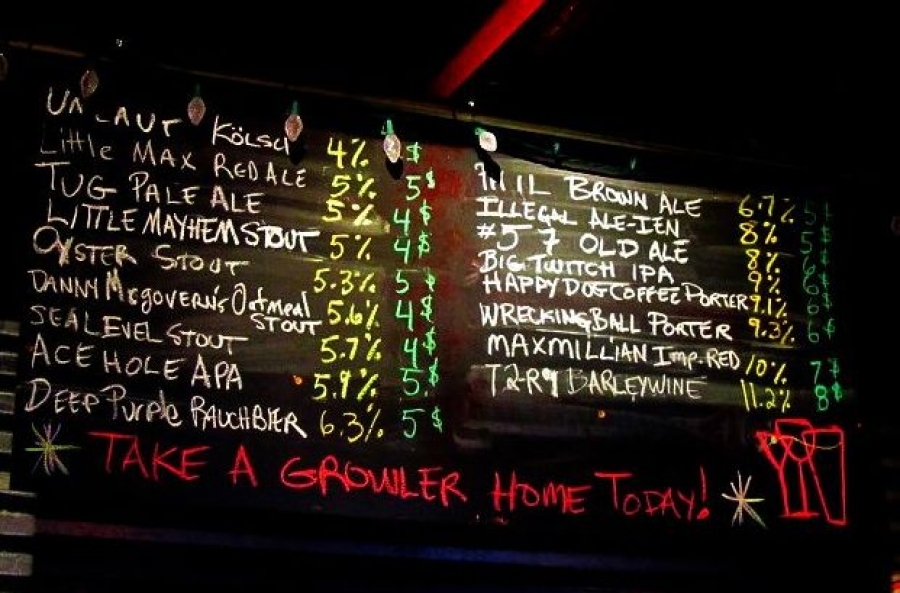 Kölsch 4% $
Little MAX RED ALE 5% 5$
TUG PALE ALE 5% 4$
LITTLE MAYHEM STOUT 5% 4$
OYSTER STOUT 5.3% 5$
DANNY McGOVERN'S Oatmeal STOUT 5.6% 4$
SEA LEVEL STOUT 5.7% 4$
ACE HOLE APA 5.9% 5$
DEEP Purple RAUCHBIER 6.3% 5$
BROWN ALE 6.7% 5$
ILLEGAL ALE-IEN 8% 5$
#5 7 OLD ALE 8%
BIG TWITCH IPA 9% 6$
HAPPY DOG COFFEE PORTER 9.1% 6$
WRECKING BALL PORTER 9.3% 6$
MAXMILLIAN Imp. RED 10% 7$
BARLEYWINE 11.2% 8$
TAKE A GROWLER HOME TODAY!